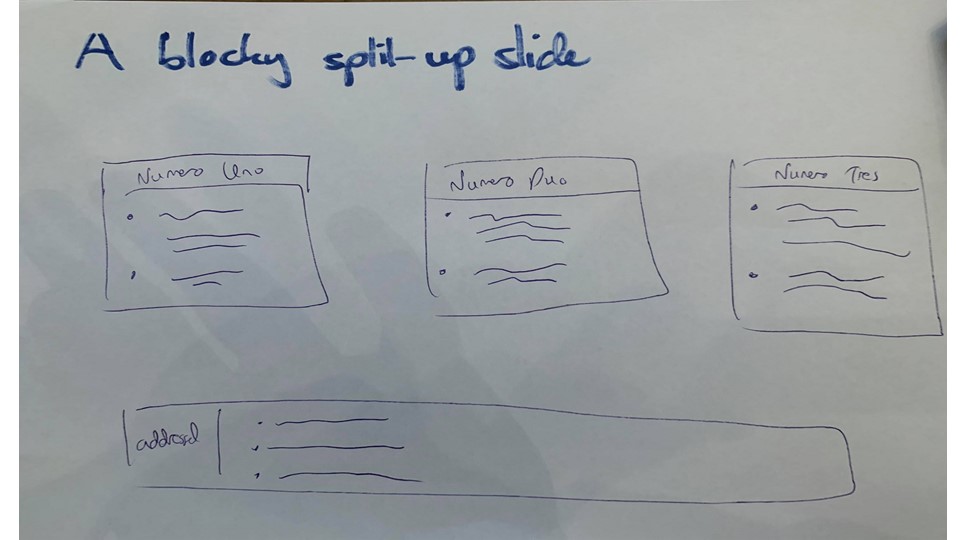 A blocky split-up slide
Numero Uno
Numero Duo
Numero Tres